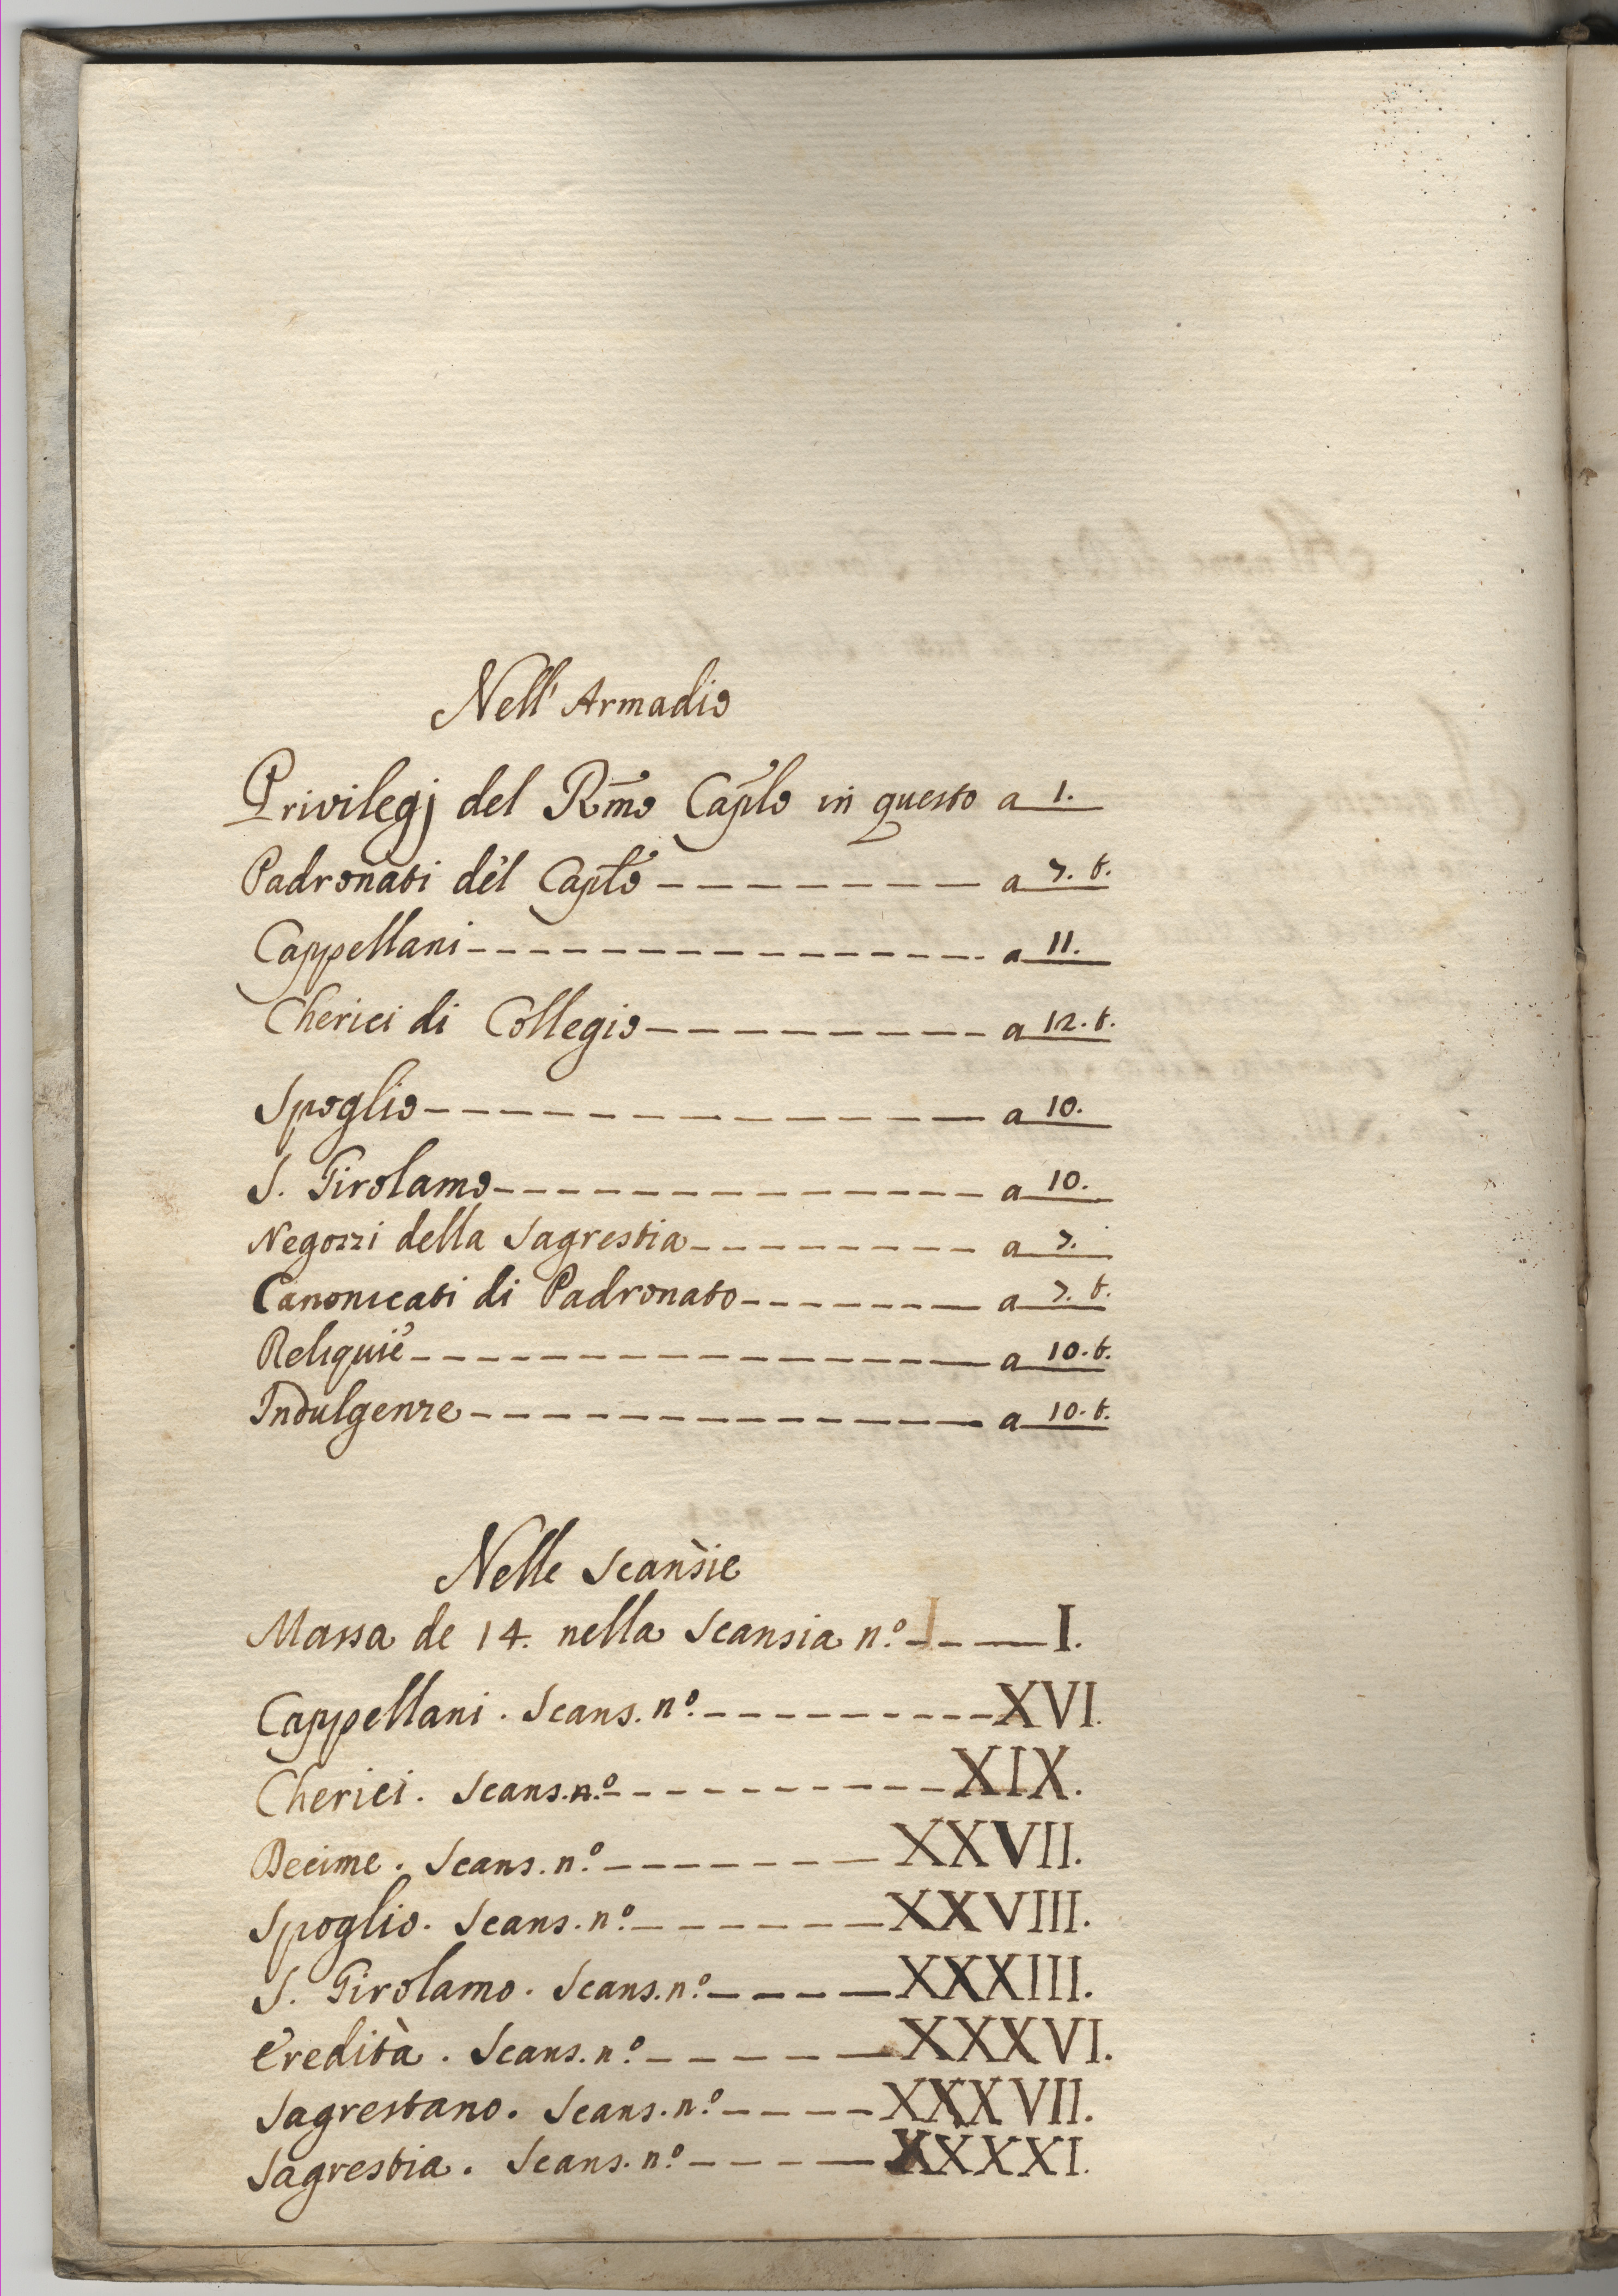 Nell' Armadio
Privilegj del Rm̃o Capl̃o in questo a 1.
Padronati del Capl̃o -------- a 7. t.
Cappellani --------------- a 11.
Cherici di Collegio ---------- a 12. t.
Spoglio --------------- a 10.
S. Girolamo --------------- a 10.
Negozzi della Sagrestia --------- a 7.
Canonicati di Padronato ------- a 7. t.
Reliquie ---------------- a 10. t.
Indulgenze -------------- a 10. t.
Nelle Scansie
Massa de 14. nella Scansia n.º ---- I.
Cappellani. Scans. nº. ---------- XVI.
Cherici. Scans. n.º ---------- XIX.
Decime. Scans. n.º -------- XXVII.
Spoglio. Scans. n.º ------- XXVIII.
S. Girolamo. Scans. n.º ----- XXXIII.
Eredità. Scans. n.º ------ XXXVI.
Sagrestano. Scans. n.º ----- XXXVII.
Sagrestia. Scans. n.º ----- XXXXI.